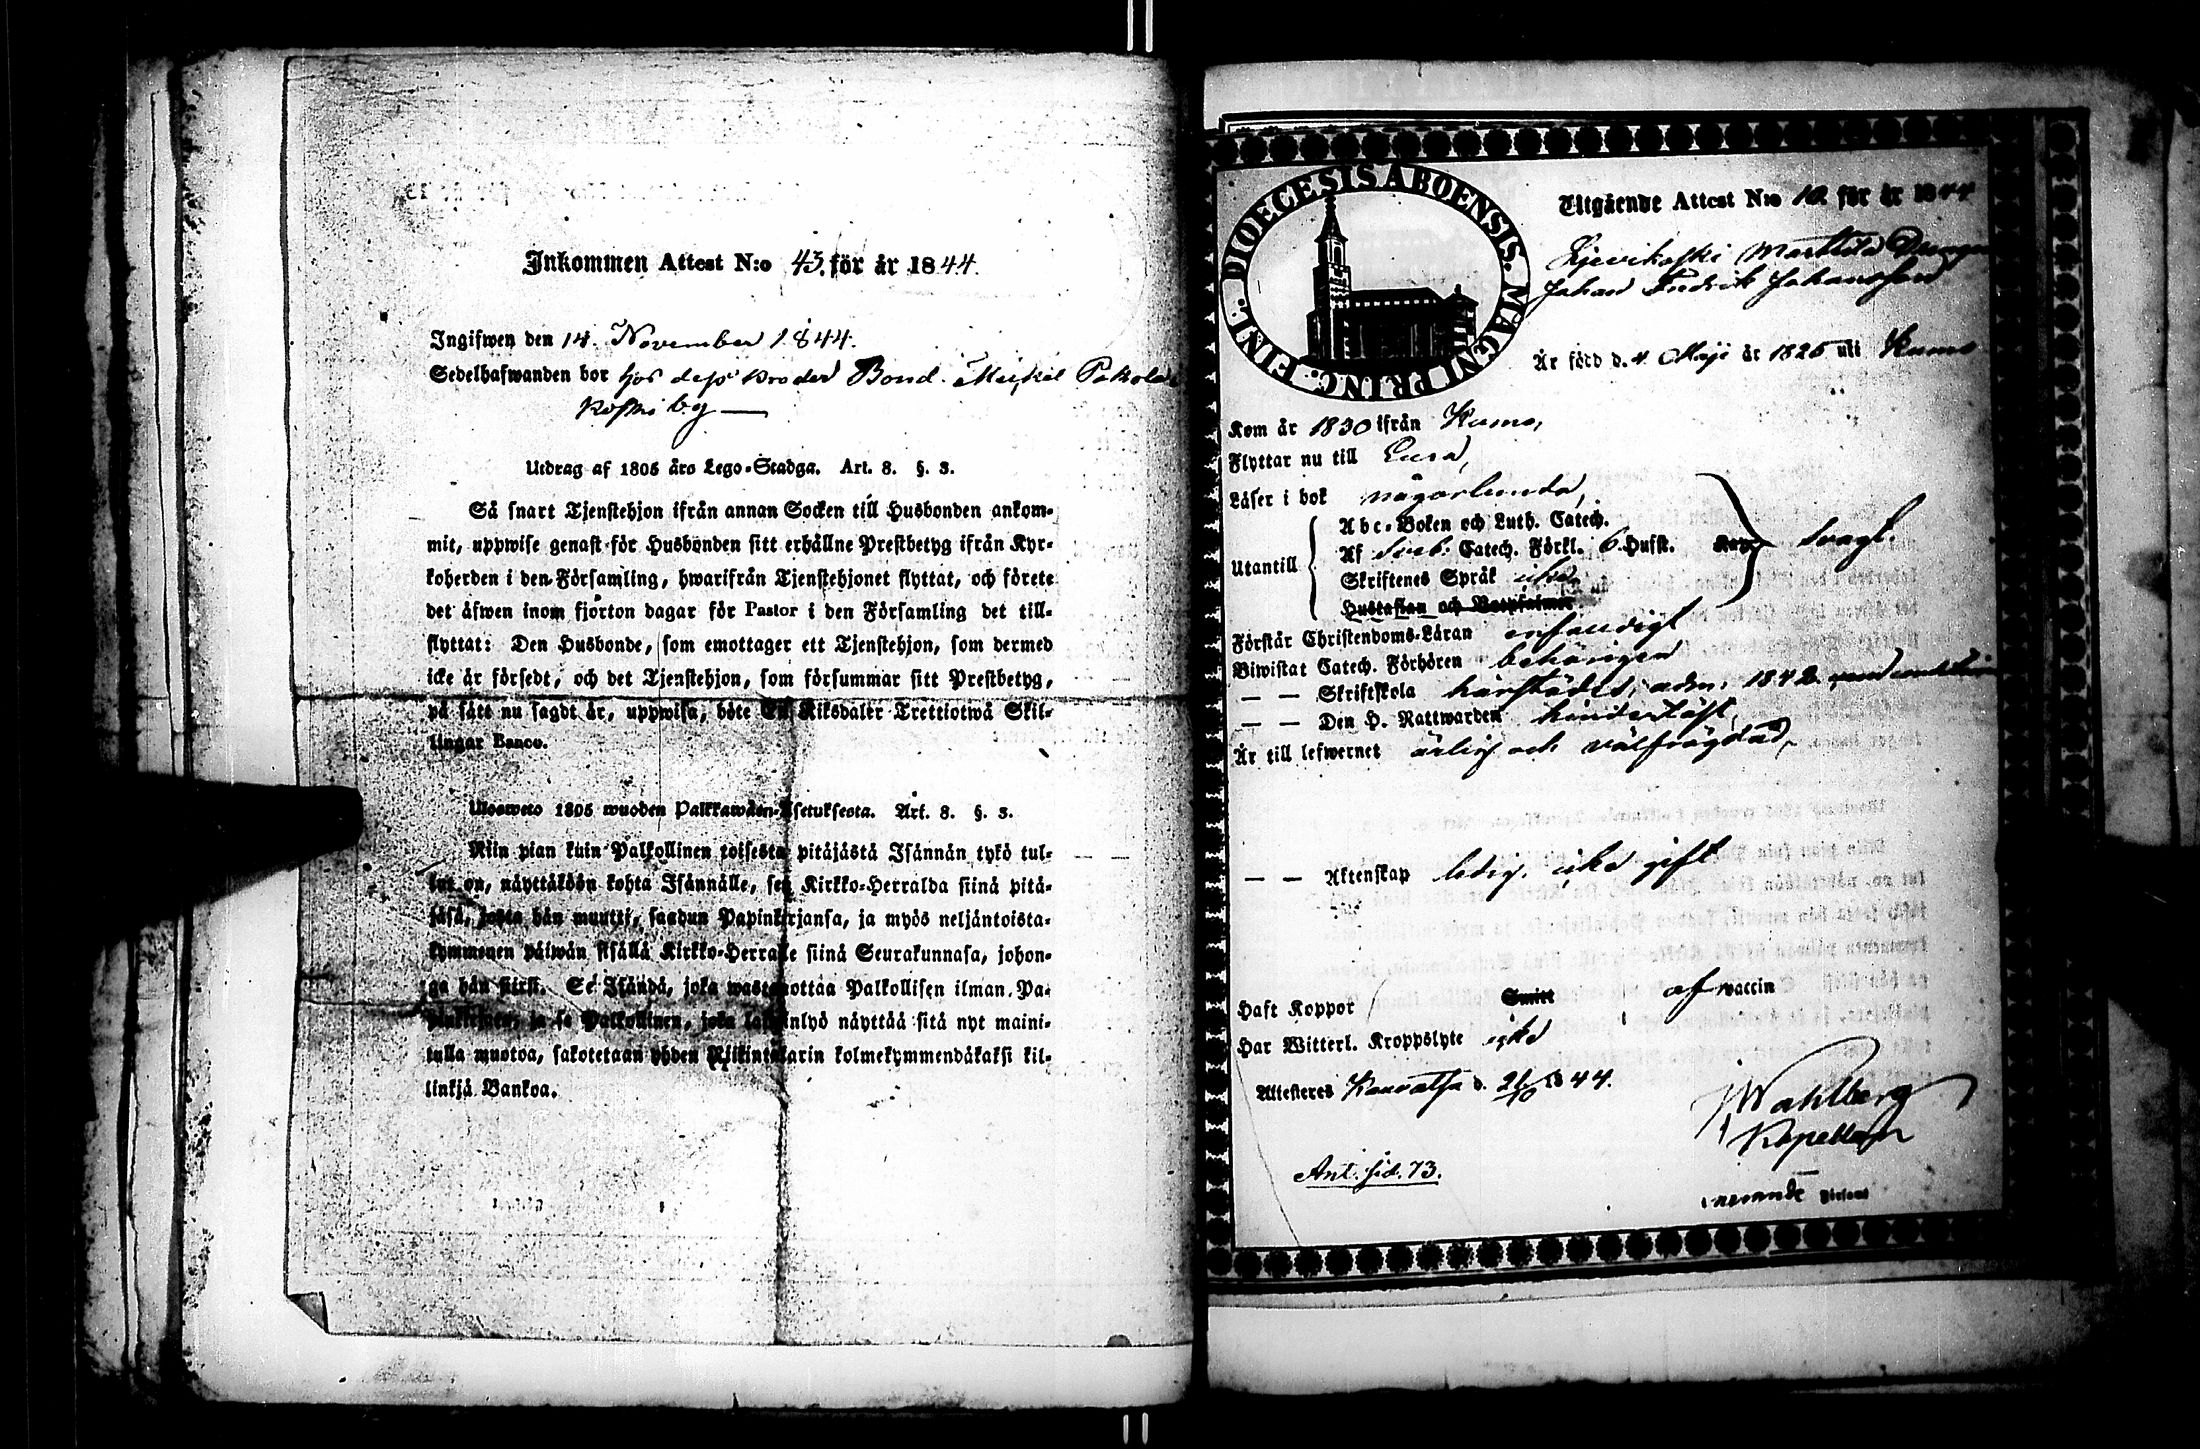 Inkommen Attest N:o 43. för år 1844.
Ingifwen den 14. November 1844.
Sedelhafwanden bor hos dess broder Bond. Michel Pakola
Koski by —
Utdrag af 1805 års Lego-Stadga. Art. 8. §. 3.
Så snart Tjenstehjon ifrån annan Socken till Husbonden ankom-
mit, uppwise genast för Husbonden sitt erhållne Prestbetyg ifrån Kyr-
koherden i den Församling, hwarifrån Tjenstehjonet flyttat, och förete
det äfwen inom fjorton dagar för Pastor i den Församling det till-
flyttat: Den Husbonde, som emottager ett Tjenstehjon, som dermed
icke är försedt, och det Tjenstehjon, som försummar sitt Prestbetyg,
på sätt nu sagdt är, uppwisa, böte En Riksdaler Trettiotwå Skil-
lingar Banco.
Uloswеto 1805 wuoden Palkkawäen-Asetuksesta. Art. 8. §. 3.
Niin pian kuin Palkollinen toisesta pitäjästä Isännän tykö tul-
lut on, näyttäköön kohta Isännälle, sen Kirkko-Herralda siinä pitä-
jäsä, josta hän muutti, saadun Papinkirjansa, ja myös neljäntoista-
kymmenen päiwän sisällä Kirkko-Herralle siinä Seurakunnasa, johon-
ga hän siirsi. Se Isändä, joka wastanottaa Palkollisen ilman Pa-
pinkirjata, ja se Palkollinen, joka laiminlyö näyttää sitä nyt maini-
tulla muotoa, sakotetaan yhden Riikintalarin kolmekymmendäkaksi kil-
linkiä Bankoa.
DIOECESIS ABOENSIS. MAGNI PRINC. FINL.
Utgående Attest N:o 10 för år 1844
Johan Fredrik Johansson
Är född d. 4 Maji år 1825 uti Kumo
Kom år 1830 ifrån Kumo,
Flyttar nu till Eura,
Läser i bok någorlunda,
Utantill
Abc-Boken och Luth. Catech.
Af Sveb. Catech. Förkl. 6 Hufst. svagt.
Skriftenes Språk icke
Hustaflan och Botpsalmer
Förstår Christendoms-Läran enfaldigt
Biwistat Catech. Förhören behörigen
— — Skriftskola härstädes, adm. 1842
— — Den H. Nattwarden hinderlöst,
Är till lefwernet ärlig och välfrägdad,
— — Äktenskap ledig, icke gift
Haft Koppor Smitt af vaccin
Har Witterl. Kroppslyte icke
Attesteres Kauvatsa d. 26/10 1844.
J Wahlberg
Kapellan
Ant. sid. 73.